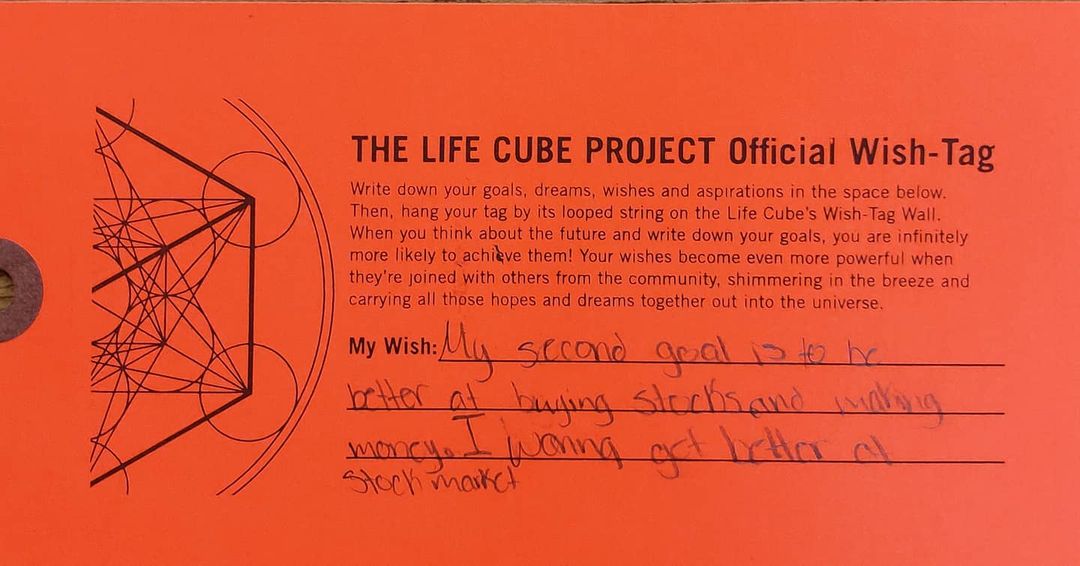 THE LIFE CUBE PROJECT Official Wish-Tag
Write down your goals, dreams, wishes and aspirations in the space below.
Then, hang your tag by its looped string on the Life Cube's Wish-Tag Wall.
When you think about the future and write down your goals, you are infinitely
more likely to achieve them! Your wishes become even more powerful when
they're joined with others from the community, shimmering in the breeze and
carrying all those hopes and dreams together out into the universe.
My Wish: My second goal is to be
better at buying stocks and making
money. I wanna get better at
stock market